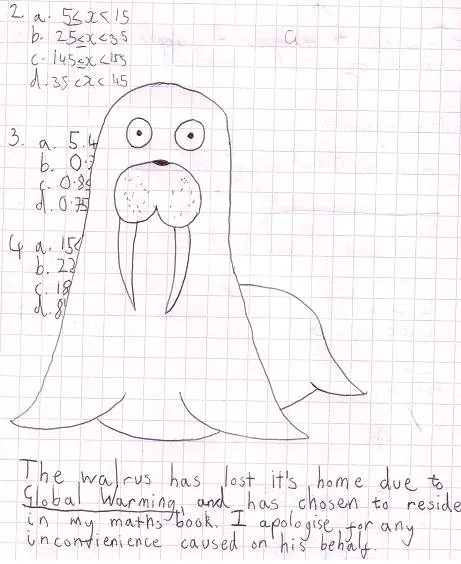 2. a. 5≤x<15
b. 25≤x<35
c. 145≤x<155
d. 35<x<45
3. a. 5.4
b. 0.
c. 0.8
d. 0.75
4 a. 15
b. 22
c. 18
d. 8
The walrus has lost it's home due to
Global Warming, and has chosen to reside
in my maths book. I apologise for any
inconvienience caused on his behalf.